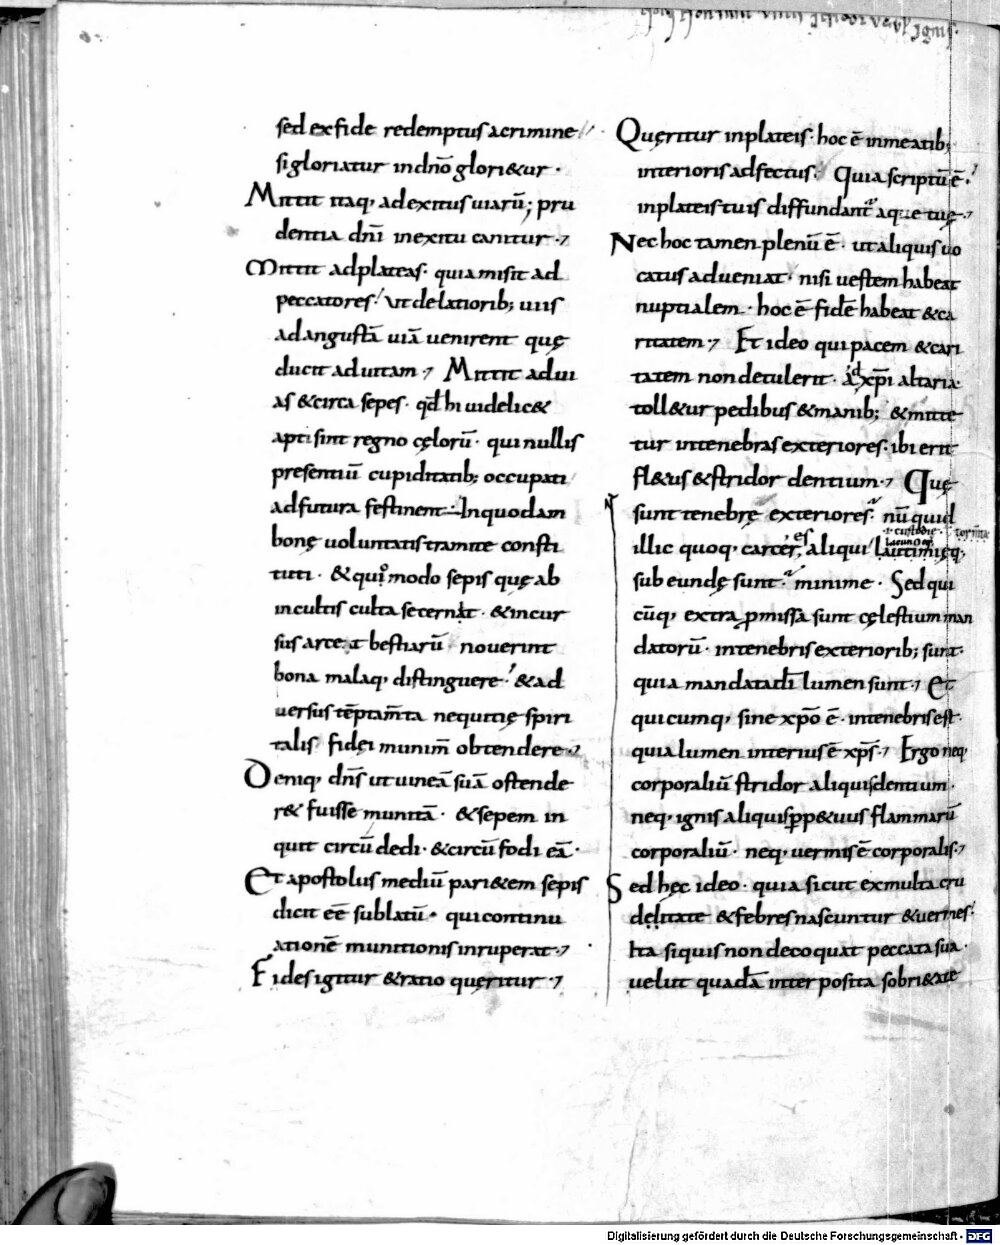 sed ex fide redemptus a crimine
si gloriatur in dño glori&ur ·
Mittit itaq, ad exitus uiarū; pru
dentia dñi in exitu canitur ·7
Mittit ad plateas · quia misit ad
peccatores! Ut de latiorib; uiis
ad angustā uiā uenirent quę
ducit ad uitam ·7 Mittit ad ui
as & circa sepes · qđ hi uidelic&
apti sint regno cęlorū · qui nullis
presentiū cupiditatib; occupati
ad futura festinent In quodam
bonę uoluntatis tramite consti
tuti · & quomodo sepis quę ab
incultis culta secernat · & incur
sus arceat bestiarū nouerint
bona malaq, distinguere! & ad
uersus tēptam̄ta nequitię spiri
talis fidęi munim̄ obtendere ·7
Deniq, dñs ut uineā suā ostende
r& fuisse munitā · & sepem in
quit circū dedi · & circū fodi eā ·
Et apostolus mediū pari&em sepis
dicit eē sublatū · qui continu
ationē munitionis inruperat ·7
Fides igitur & ratio quęritur ·7
Quęritur in plateis · hoc ē in meatib;
interioris adfectus · Quia scriptū ē ·
in plateis tuis diffundant aque tuę ·7
Nec hoc tamen plenū ē · ut aliquis uo
catus adueniat · nisi uestem habeat
nuptialem · hoc ē fidē habeat & ca
ritatem ·7 Et ideo qui pacem & cari
tatem non detulerit · ad xp̄i altaria
toll&ur pedibus & manib; & mitte
tur in tenebras exteriores · ibi erit
fl&us & stridor dentium ·7 Quę
sunt tenebrę exteriores · nū quid
illic quoq, carceres aliqui lautimięq,
subeundę sunt · minime · Sed qui
cūq, extra p̱missa sunt cęlestium man
datorū · in tenebris exteriorib; sunt ·
quia mandata dī lumen sunt ·7 Et
quicumq, sine xp̄o ē · in tenebris est ·
quia lumen interius ē xp̄s ·7 Ergo neq,
corporaliū stridor aliquis dentium ·
neq, ignis aliquis p̱p&uus flammarū
corporaliū · neq, uermis ē corporalis ·7
Sed hęc ideo · quia sicut ex multa cru
dęlitate & febres nascuntur & uermes!
Ita si quis non decoquat peccata sua ·
uelut quadā inter posita sobri&ate
Digitalisierung gefördert durch die Deutsche Forschungsgemeinschaft - DFG